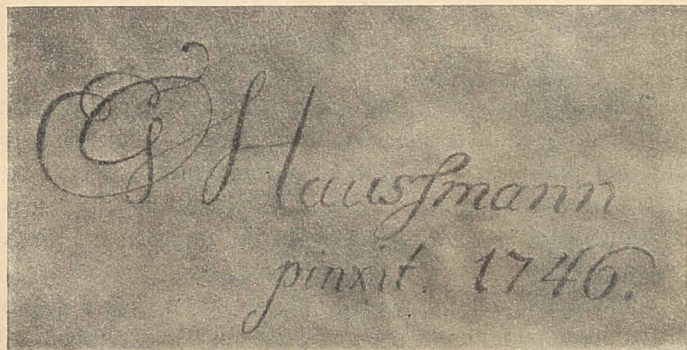 EG Haussmann
pinxit. 1746.